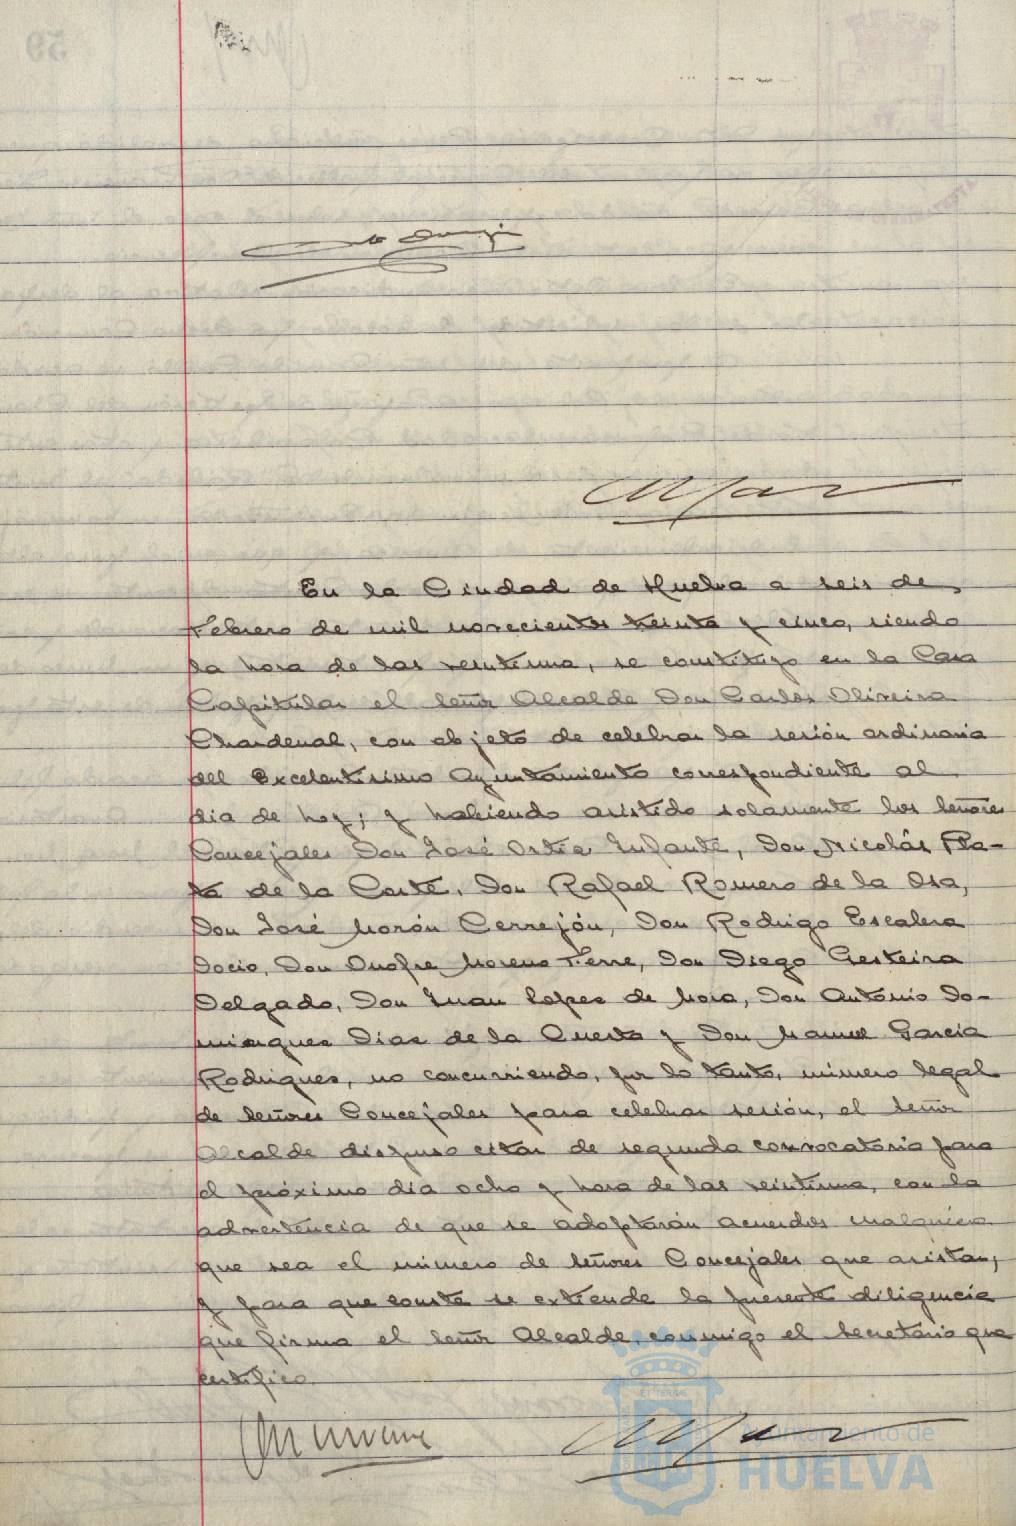 En la Ciudad de Huelva a seis de
Febrero de mil novecientos treinta y cinco, siendo
la hora de las veintiuna, se constituyó en la Casa
Capitular el Señor Alcalde Don Carlos Oliveira
Chardenal, con objeto de celebrar la sesión ordinaria
del Excelentísimo Ayuntamiento correspondiente al
día de hoy; y habiendo asistido solamente los Señores
Concejales Don José Ortiz Infante, Don Nicolás Pla-
ta de la Corte, Don Rafael Romero de la Osa,
Don José Morón Cerrejón, Don Rodrigo Escalera
Docio, Don Onofre Moreno Ferre, Don Diego Gesteira
Delgado, Don Juan Lopez de Mora, Don Antonio Do-
minguez Diaz de la Quesa y Don Manuel García
Rodriguez, no concurriendo, por lo tanto, número legal
de Señores Concejales para celebrar sesión, el Señor
Alcalde dispuso citar de segunda convocatoria para
el próximo día ocho y hora de las veintiuna, con la
advertencia de que se adoptarán acuerdos cualquiera
que sea el número de Señores Concejales que asistan;
y para que conste se extiende la presente diligencia
que firma el Señor Alcalde, conmigo el Secretario que
certifico.
Ayuntamiento de
HUELVA